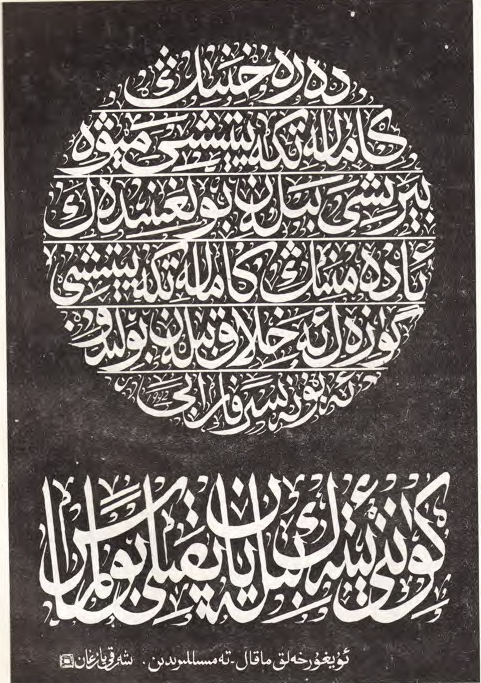 دەرەخنىڭ
كامالەتكە يېتىشى مېۋە
بېرىشى بىلەن بولغىنىدەك
ئادەمنىڭ كامالەتكە يېتىشى
گۈزەل ئەخلاق بىلەن بولىدۇ
ئەبۇنەسىر فارابى
1992
كۈننى ئېتەك بىلەن ياپقىلى بولماس
ئۇيغۇر خەلق ماقال-تەمسىللىرىدىن. شەرقى يازغان